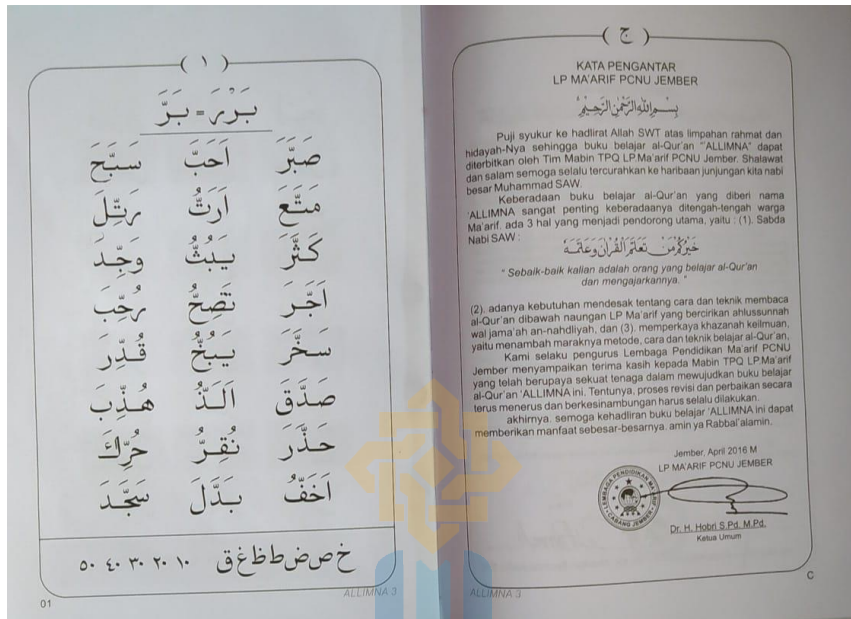 ( ١ )
بَرْرَ = بَرَّ
صَبَّرَ اَحَبَّ سَبَّحَ
مَتَّعَ اَرَتُّ رَتِّلَ
كَثَّرَ يَبُثُّ وَجِّدَ
اَجَّرَ تَصِحُّ رُحِّبَ
سَخَّرَ يَبُخُّ قُدِّرَ
صَدَّقَ اَلَذُّ هُذِّبَ
حَذَّرَ نُقِرُّ حُرِّكَ
اَخَفُّ بَدَّلَ سَجَّدَ
خ ص ض ط ظ غ ق ١٠ ٢٠ ٣٠ ٤٠ ٥٠
01
ALLIMNA 3
( ج )
KATA PENGANTAR
LP MA'ARIF PCNU JEMBER
بِسْمِ اللهِ الرَّحْمٰنِ الرَّحِيْمِ
Puji syukur ke hadlirat Allah SWT atas limpahan rahmat dan
hidayah-Nya sehingga buku belajar al-Qur'an "'ALLIMNA" dapat
diterbitkan oleh Tim Mabin TPQ LP.Ma'arif PCNU Jember. Shalawat
dan salam semoga selalu tercurahkan ke haribaan junjungan kita nabi
besar Muhammad SAW.
Keberadaan buku belajar al-Qur'an yang diberi nama
'ALLIMNA sangat penting keberadaanya ditengah-tengah warga
Ma'arif. ada 3 hal yang menjadi pendorong utama, yaitu : (1). Sabda
Nabi SAW :
خَيْرُكُمْ مَنْ تَعَلَّمَ الْقُرْاٰنَ وَعَلَّمَهُ
" Sebaik-baik kalian adalah orang yang belajar al-Qur'an
dan mengajarkannya. "
(2). adanya kebutuhan mendesak tentang cara dan teknik membaca
al-Qur'an dibawah naungan LP Ma'arif yang bercirikan ahlussunnah
wal jama'ah an-nahdliyah, dan (3). memperkaya khazanah keilmuan,
yaitu menambah maraknya metode, cara dan teknik belajar al-Qur'an,
Kami selaku pengurus Lembaga Pendidikan Ma'arif PCNU
Jember menyampaikan terima kasih kepada Mabin TPQ LP.Ma'arif
yang telah berupaya sekuat tenaga dalam mewujudkan buku belajar
al-Qur'an 'ALLIMNA ini. Tentunya, proses revisi dan perbaikan secara
terus menerus dan berkesinambungan harus selalu dilakukan.
akhirnya. semoga kehadliran buku belajar 'ALLIMNA ini dapat
memberikan manfaat sebesar-besarnya. amin ya Rabbal'alamin.
Jember, April 2016 M
LP MA'ARIF PCNU JEMBER
LEMBAGA PENDIDIKAN MA'ARIF
CABANG JEMBER
Dr. H. Hobri S.Pd. M.Pd.
Ketua Umum
C
ALLIMNA 3